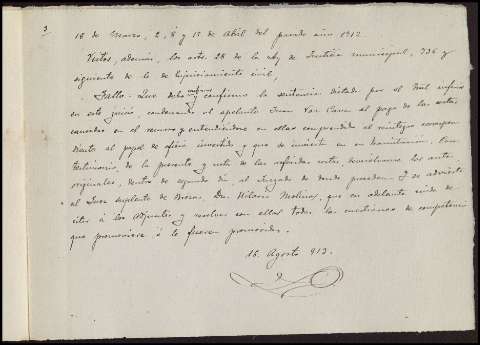 3
18 de Marzo, 2, 8 y 15 de Abril del pasado año 1912.
Vistos, además, los arts. 28 de la ley de Justicia municipal, 736 y
siguiente de la de Enjuiciamiento civil,
Fallo: Que debo confirmar y confirmo la sentencia dictada por el Tribl inferior
en este juicio, condenando al apelante Juan al pago de las costas
causadas en el recurso y entendiéndose en ellas comprendido el reintegro correspon-
diente al papel de oficio invertido y que se invierta en su tramitación. Con
testimonio de la presente y nota de las referidas costas devuélvanse los autos
originales, dentro de segundo día al Juzgado de donde proceden. Y se advierte
al Juez suplente de Dn. Hilario Molina, que en adelante cuide de
citar á los Adjuntos y resolver con ellos todas las cuestiones de competencia
que promoviere ó le fueren promovidas.
16. Agosto 913.